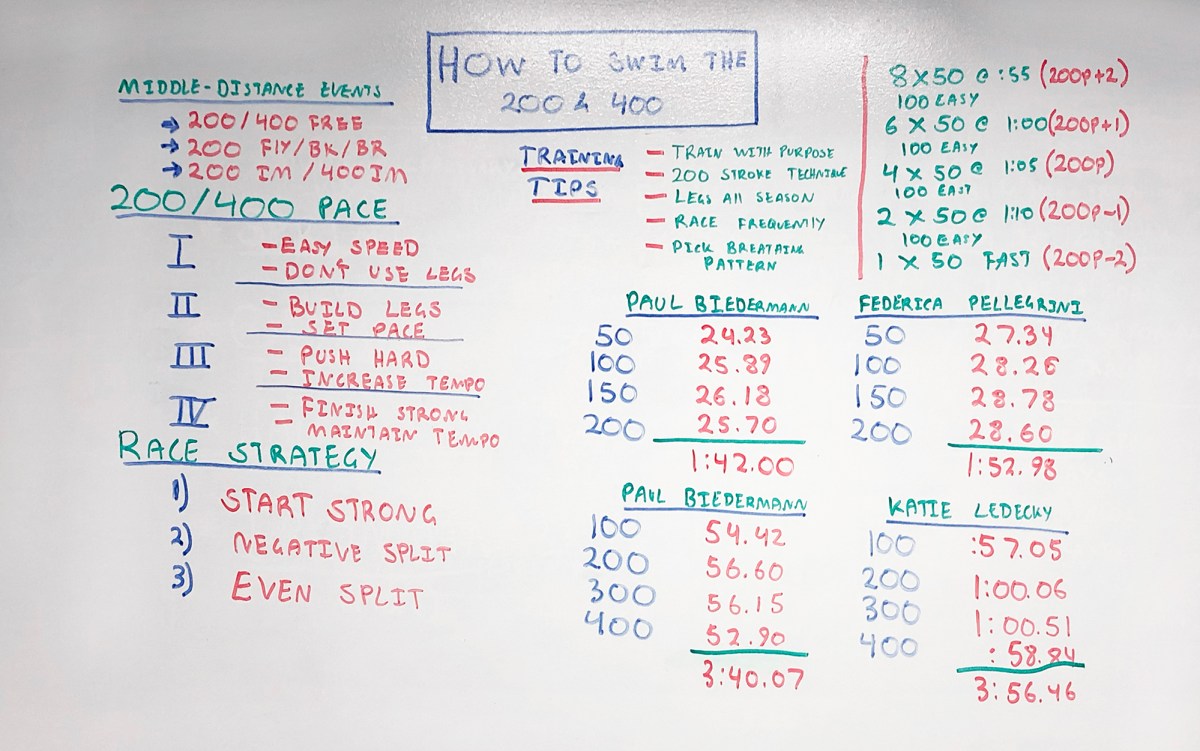 HOW TO SWIM THE
200 & 400
MIDDLE-DISTANCE EVENTS
→ 200/400 FREE
→ 200 FLY/BK/BR
→ 200 IM/400 IM
200/400 PACE
I
- EASY SPEED
- DON'T USE LEGS
II
- BUILD LEGS
- SET PACE
III
- PUSH HARD
- INCREASE TEMPO
IV
- FINISH STRONG
MAINTAIN TEMPO
RACE STRATEGY
1) START STRONG
2) NEGATIVE SPLIT
3) EVEN SPLIT
TRAINING
TIPS
- TRAIN WITH PURPOSE
- 200 STROKE TECHNIQUE
- LEGS All SEASON
- RACE FREQUENTLY
- PICK BREATHING
PATTERN
8 X 50 @ :55 (200P+2)
100 EASY
6 X 50 @ 1:00 (200P+1)
100 EASY
4 X 50 @ 1:05 (200P)
100 EASY
2 X 50 @ 1:10 (200P-1)
100 EASY
1 X 50 FAST (200P-2)
PAUL BIEDERMANN
50 24.23
100 25.89
150 26.18
200 25.70
1:42.00
FEDERICA PELLEGRINI
50 27.34
100 28.26
150 28.78
200 28.60
1:52.98
PAUL BIEDERMANN
100 54.42
200 56.60
300 56.15
400 52.90
3:40.07
KATIE LEDECKY
100 :57.05
200 1:00.06
300 1:00.51
400 :58.84
3:56.46